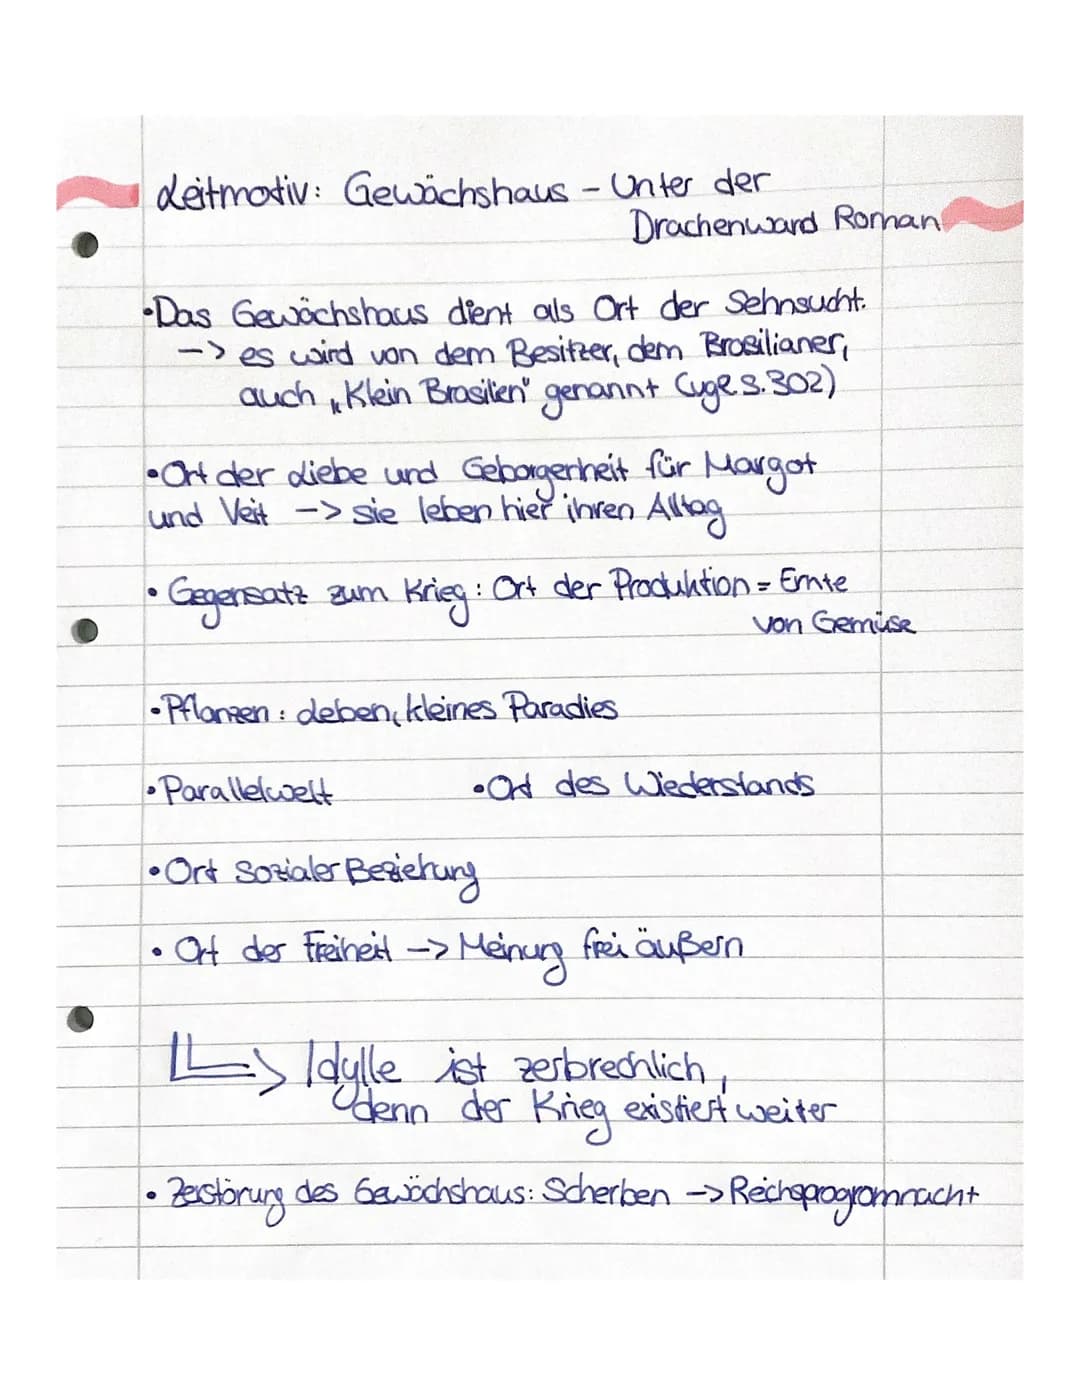 Leitmotiv: Gewächshaus - Unter der
Drachenward Roman
•Das Gewächshaus dient als Ort der Sehnsucht.
-> es wird von dem Besitzer, dem Brasilianer,
auch „Klein Brasilien" genannt (vgl. S. 302)
•Ort der Liebe und Geborgenheit für Margot
und Veit -> sie leben hier ihren Alltag
• Gegensatz zum Krieg: Ort der Produktion = Ernte
von Gemüse
•Pflanzen: Leben, kleines Paradies
•Parallelwelt •Ort des Wiederstands
•Ort Sozialer Beziehung
• Ort der Freiheit -> Meinung frei äußern
=> Idylle ist zerbrechlich,
denn der Krieg existiert weiter
• Zerstörung des Gewächshaus: Scherben -> Reichsprogromnacht